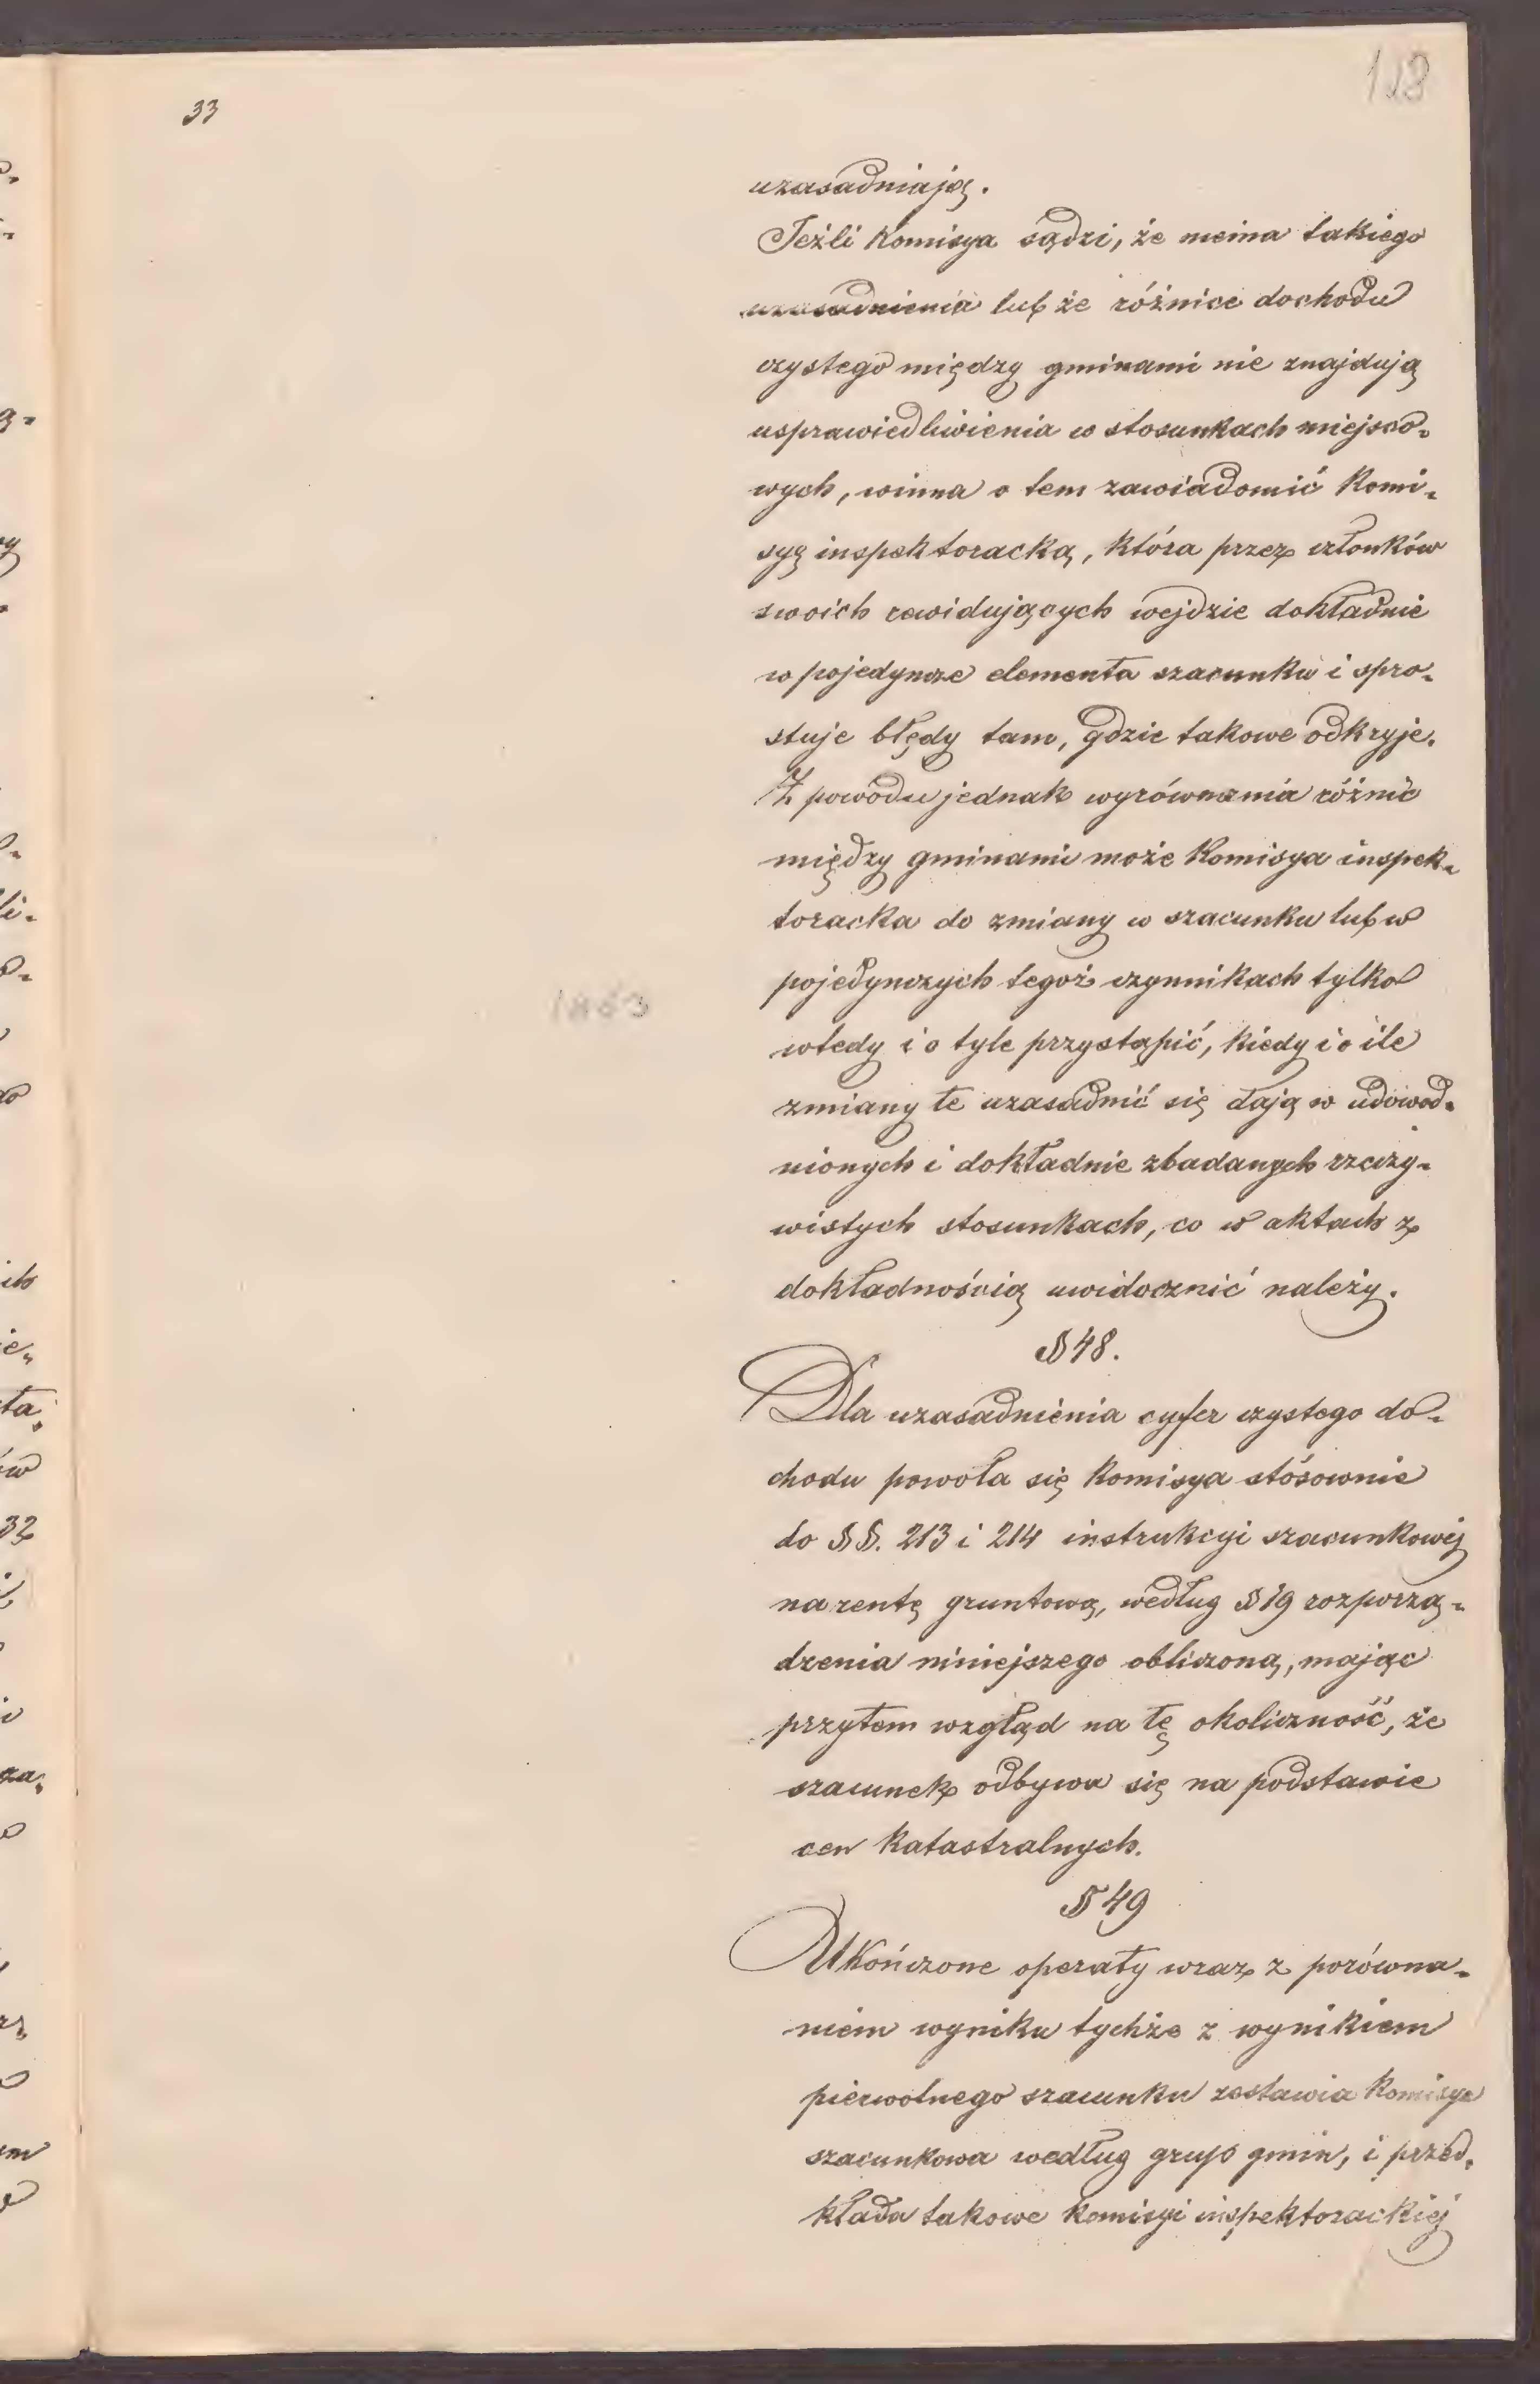 33
uzasadniają.
Jeżli Komisya sądzi, że niema takiego
uzasadnienia lub że różnice dochodu
czystego między gminami nie znajdują
usprawiedliwienia w stosunkach miejsco-
wych, winna o tem zawiadomić Komi-
syę inspektoracką, która przez członków
swoich rewidujących wejdzie dokładnie
w pojedyncze elementa szacunku i spro-
stuje błędy tam, gdzie takowe odkryje.
Z powodu jednak wyrównania różnic
między gminami może Komisya inspek-
toracka do zmiany w szacunku lub w
pojedynczych tegoż czynnikach tylko
wtedy i o tyle przystąpić, kiedy i o ile
zmiany te uzasadnić się dają w udowod-
nionych i dokładnie zbadanych rzeczy-
wistych stosunkach, co w aktach z
dokładnością uwidocznić należy.
§ 48.
Dla uzasadnienia cyfer czystego do-
chodu powoła się Komisya stósownie
do §§. 213 i 214 instrukcyi szacunkowej
na rentę gruntową, według § 19 rozporzą-
dzenia niniejszego obliczoną, mając
przytem wzgląd na tę okoliczność, że
szacunek odbywa się na podstawie
cen katastralnych.
§ 49
Ukończone operaty wraz z porówna-
niem wyniku tychże z wynikiem
pierwotnego szacunku zestawia Komisya
szacunkowa według grup gmin, i przed-
kłada takowe Komisyi inspektorackiej